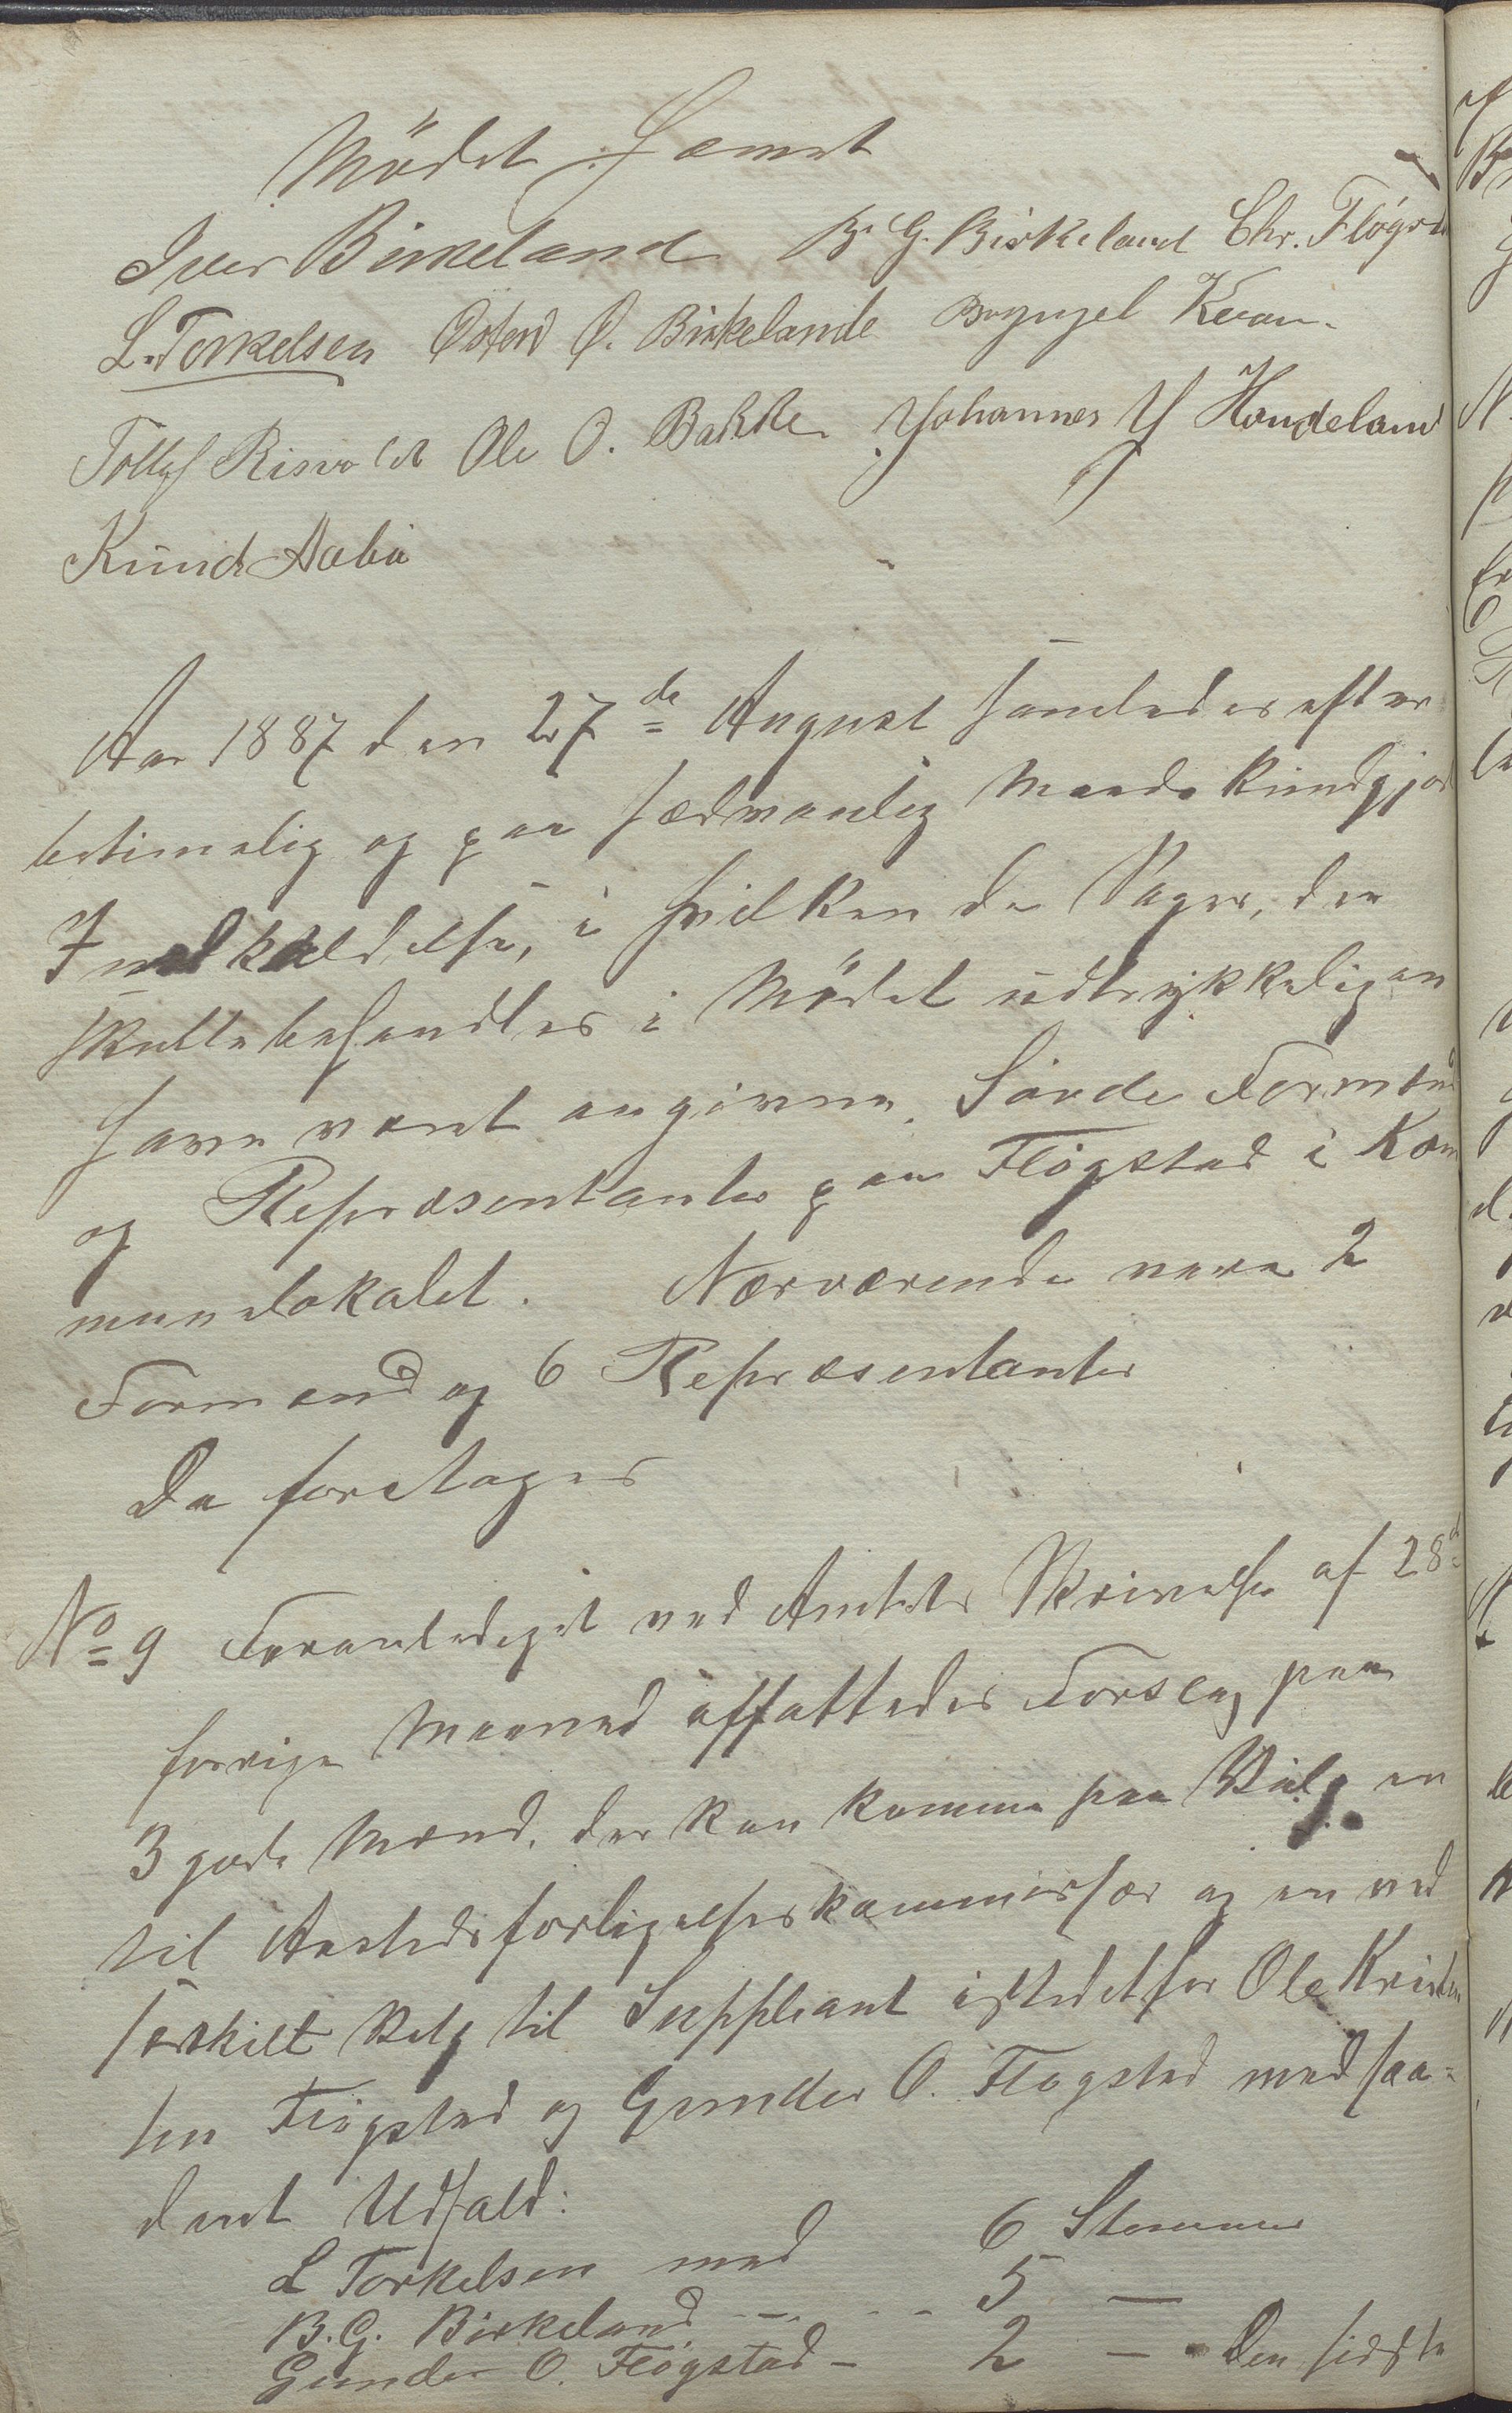 Mødet Hævet
Iver Birkeland B. G. Birkeland Chr. Fløgst
L. Torkelsen Østen Ø. Birkelande Kvam.
Risvold Ole O. Bakke Johannes J Handeland
Knud Aabø
Aar 1887 den 27de August samledes efter
betimelig og paa sædvanlig Maade kundgjor
Indkaldelse, i hvilken de Sager, der
skulle behandles i Mødet udtrykkeligen
have været angivne, Søvde Formænd
og Repræsentanter paa Fløgstad i Kom
munelokalet. Nærværende vare 2
Formænd og 6 Repræsentanter
Da foretoges
No 9 Foranlediget ved Amtets Skrivelse af 28d
forrige Maaned affattedes Forslag paa
3 gode Mænd, der kan komme paa Valg en
til Aastedsforligelseskommissær og en ved
særskilt Valg til Suppleant istedetfor Ole Kristen
sen Fløgstad og Gunder O. Fløgstad med saa-
dant Udfald:
L Torkelsen med 6 Stemmer
B. G. Birkeland - - - 5 —
Gunder O. Fløgstad - 2 — Den sidste